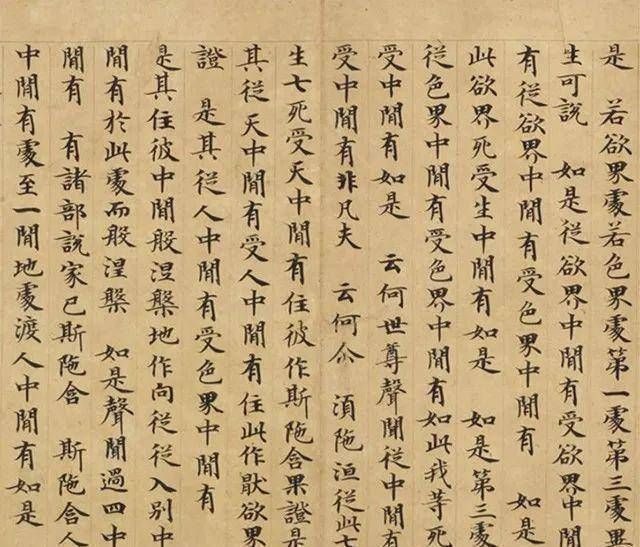 是 若欲界處若色界處第一處第三處
生可說 如是從欲界中閒有受欲界中閒
有從欲界中閒有受色界中閒有 如是
此欲界死受生中閒有如是 如是第三處
從色界中閒有受色界中閒有如此我等死
受中閒有如是 云何世尊聲聞從中閒有
受中閒有非凡夫 云何尒 須陁洹從此七
生七死受天中閒有住彼作斯陁含果證是
其從天中閒有受人中閒有住此作猒欲界
證 是其從人中閒有受色界中閒有
是其住彼中閒般涅槃地作向從從入別中
閒有於此處而般涅槃 如是聲聞過四中
閒有 有諸部說家已斯陁含 斯陁含人
中閒有處至一閒地處渡人中閒有如是